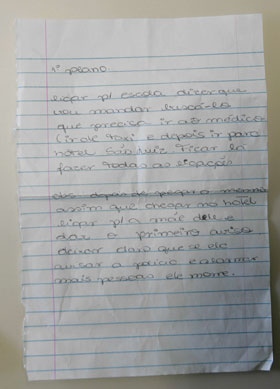 1º plano.
ligar p/ escola dizer que
vou mandar buscá-lo
que precisa ir ao médico
ir de táxi e depois ir para
hotel São Luiz. Ficar lá
fazer todas as ligações
assim que chegar no hotel
ligar p/ a mãe dele e
dar o primeiro aviso
deixar claro que se ela
avisar a polícia e alarmar
mais pessoas ele morre.